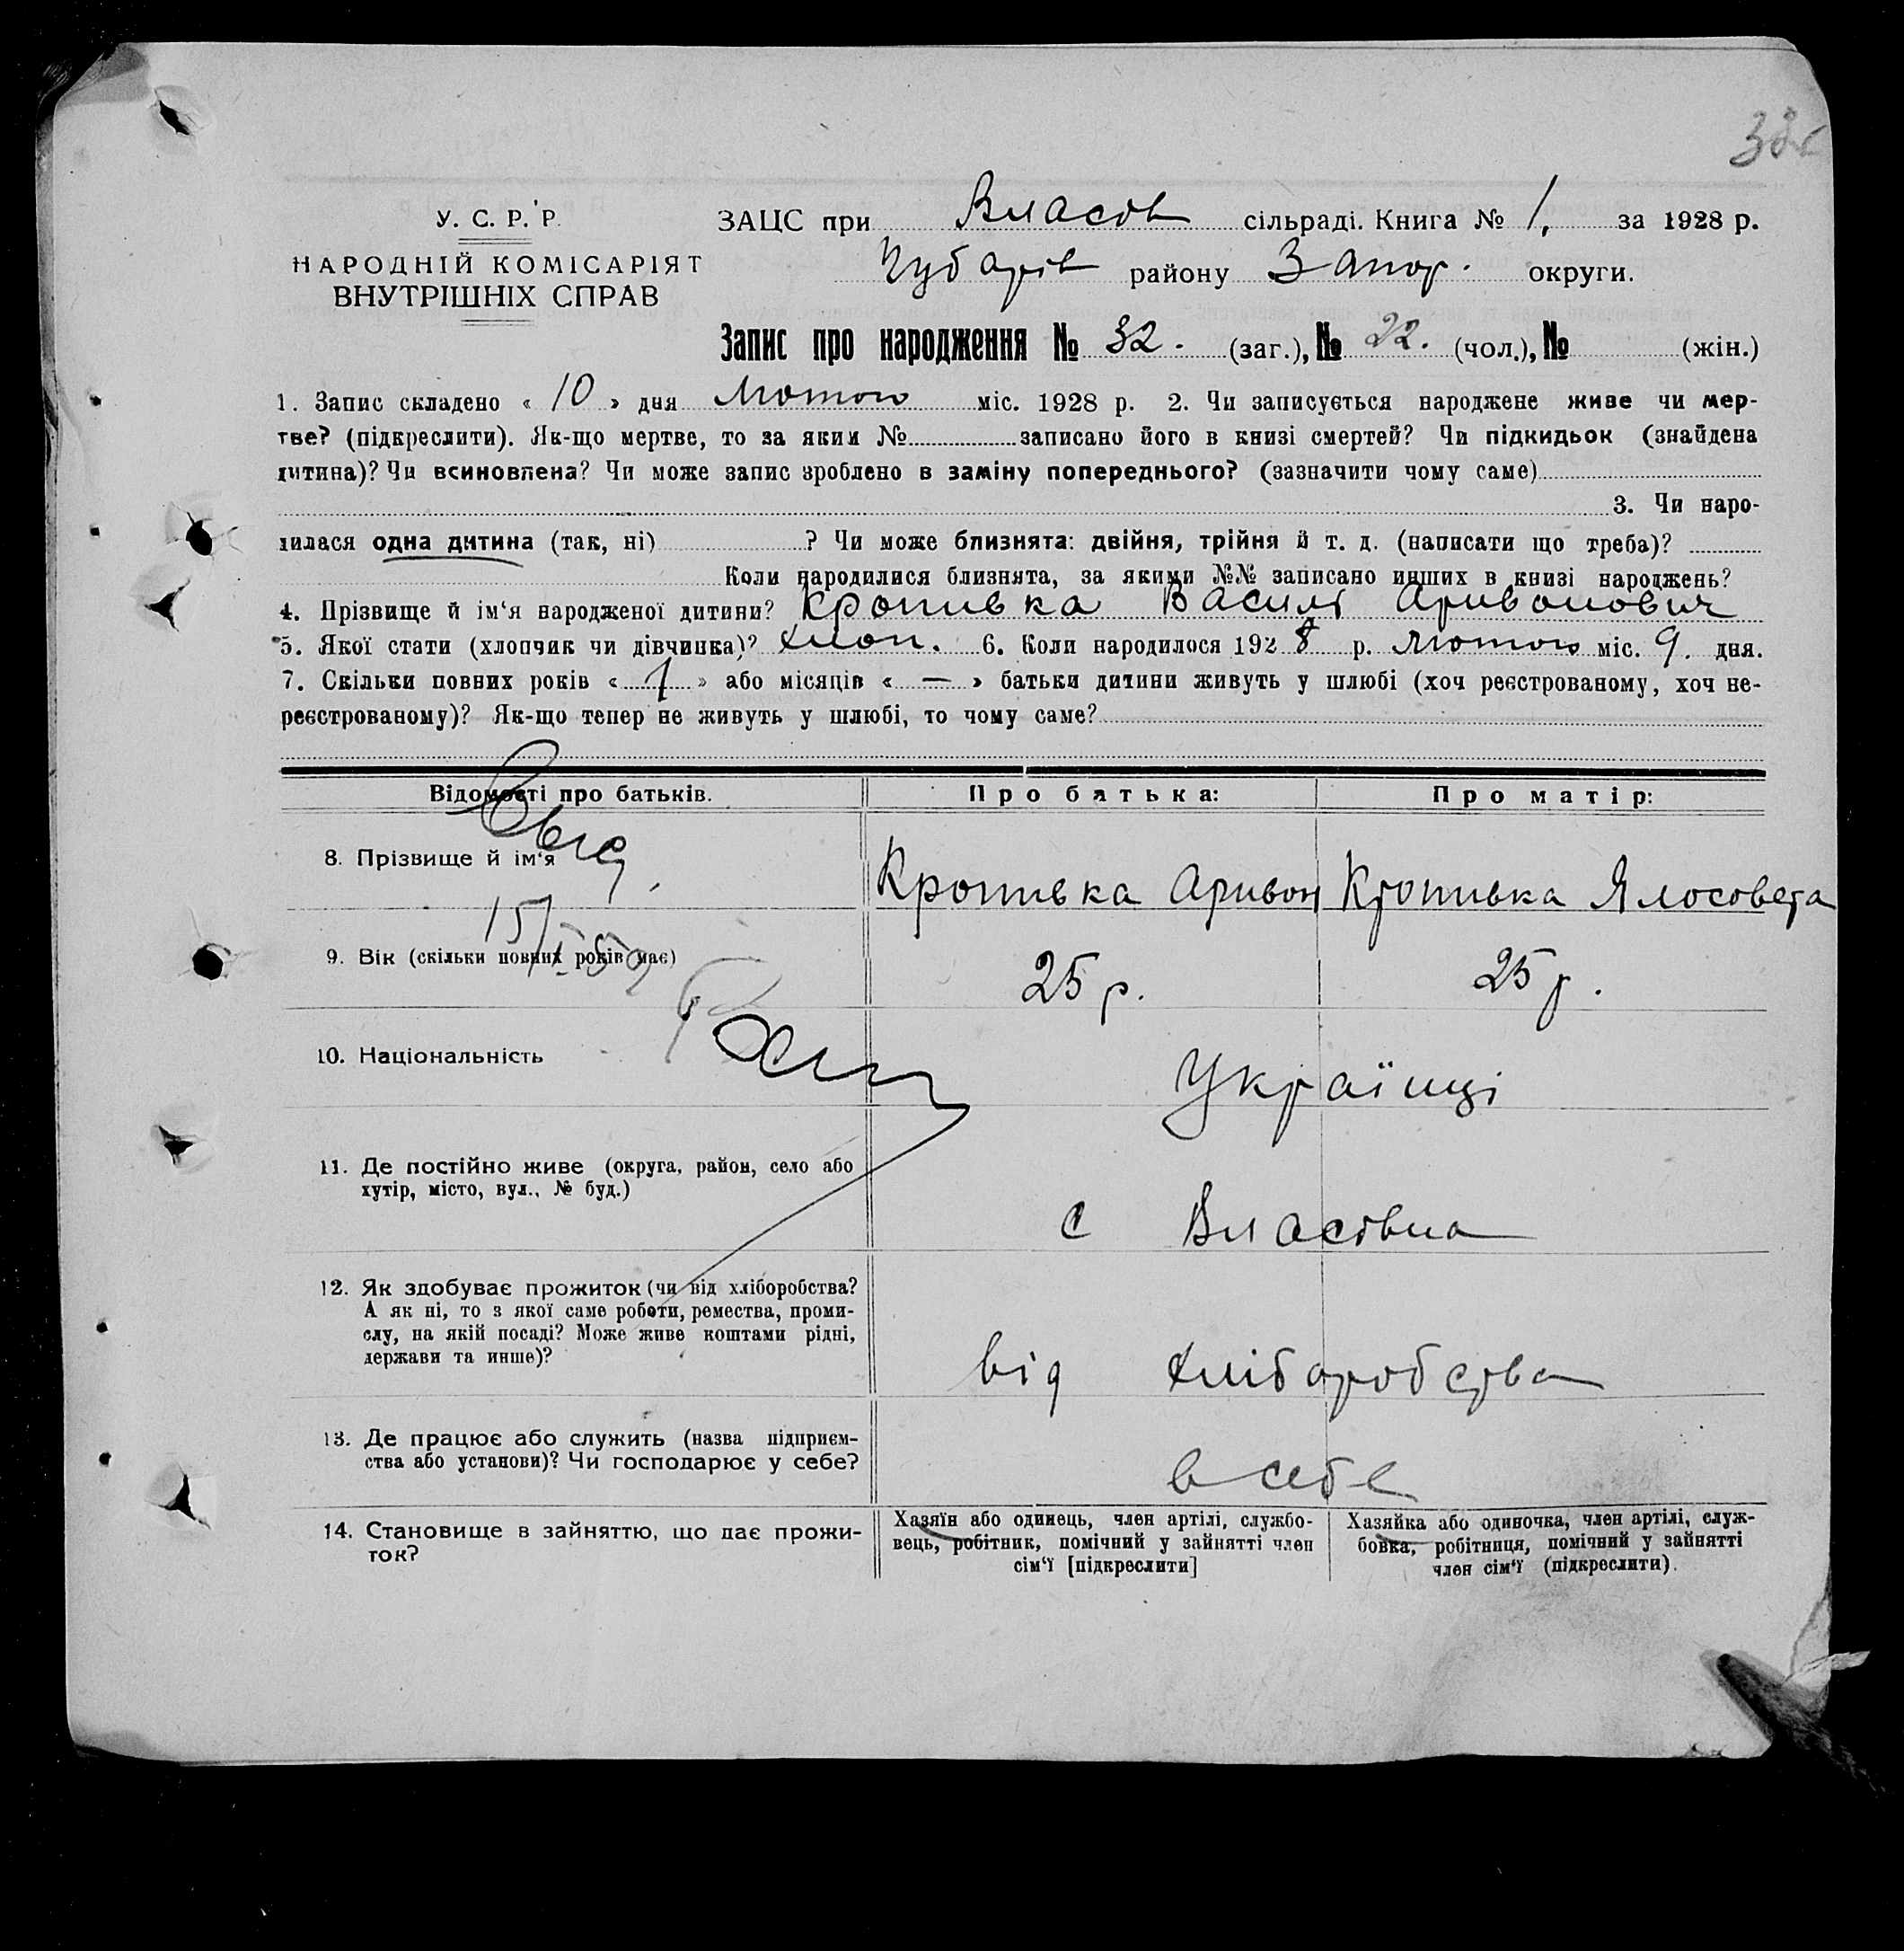 У. С. Р. Р.
НАРОДНІЙ КОМІСАРІЯТ
ВНУТРІШНІХ СПРАВ
ЗАЦС при Власов сільраді. Книга № 1, за 1928 р.
Чубарів району Запор. округи.
Запис про народження № 32. (заг.), № 22. (чол.), № (жін.)
1. Запис складено « 10 » дня Лютого міс. 1928 р. 2. Чи записується народжене живе чи мер-
тве? (підкреслити). Як-що мертве, то за яким № записано його в книзі смертей? Чи підкидьок (знайдена
дитина)? Чи всиновлена? Чи може запис зроблено в заміну попереднього? (зазначити чому саме)
3. Чи наро-
дилася одна дитина (так, ні) ? Чи може близнята: двійня, трійня й т. д. (написати що треба)?
Коли народилися близнята, за якими №№ записано инших в книзі народжень?
4. Прізвище й ім‘я народженої дитини? Кропивка Василь Аривонович
5. Якої стати (хлопчик чи дівчинка)? хлоп. 6. Коли народилося 1928 р. Лютого міс. 9. дня.
7. Скільки повних років « 1 » або місяців « — » батьки дитини живуть у шлюбі (хоч реєстрованому, хоч не-
реєстрованому)? Як-що тепер не живуть у шлюбі, то чому саме?
Відомості про батьків. Про батька: Про матір:
8. Прізвище й ім‘я Кропивка Аривон Кропивка Ялосовета
9. Вік (скільки повних років має) 25 р. 25 р.
10. Національність Українці
11. Де постійно живе (округа, район, село або
хутір, місто, вул., № буд.)
с Власівка
12. Як здобуває прожиток (чи від хліборобства?
А як ні, то з якої саме роботи, ремества, проми-
слу, на якій посаді? Може живе коштами рідні,
держави та инше)?
від хліборобства
13. Де працює або служить (назва підприєм-
ства або установи)? Чи господарює у себе?
в себе
14. Становище в зайняттю, що дає прожи-
ток?
Хазяїн або одинець, член артілі, службо-
вець, робітник, помічний у зайнятті член
сім‘ї [підкреслити]
Хазяйка або одиночка, член артілі, служ-
бовка, робітниця, помічний у зайнятті
член сім‘ї (підкреслити).